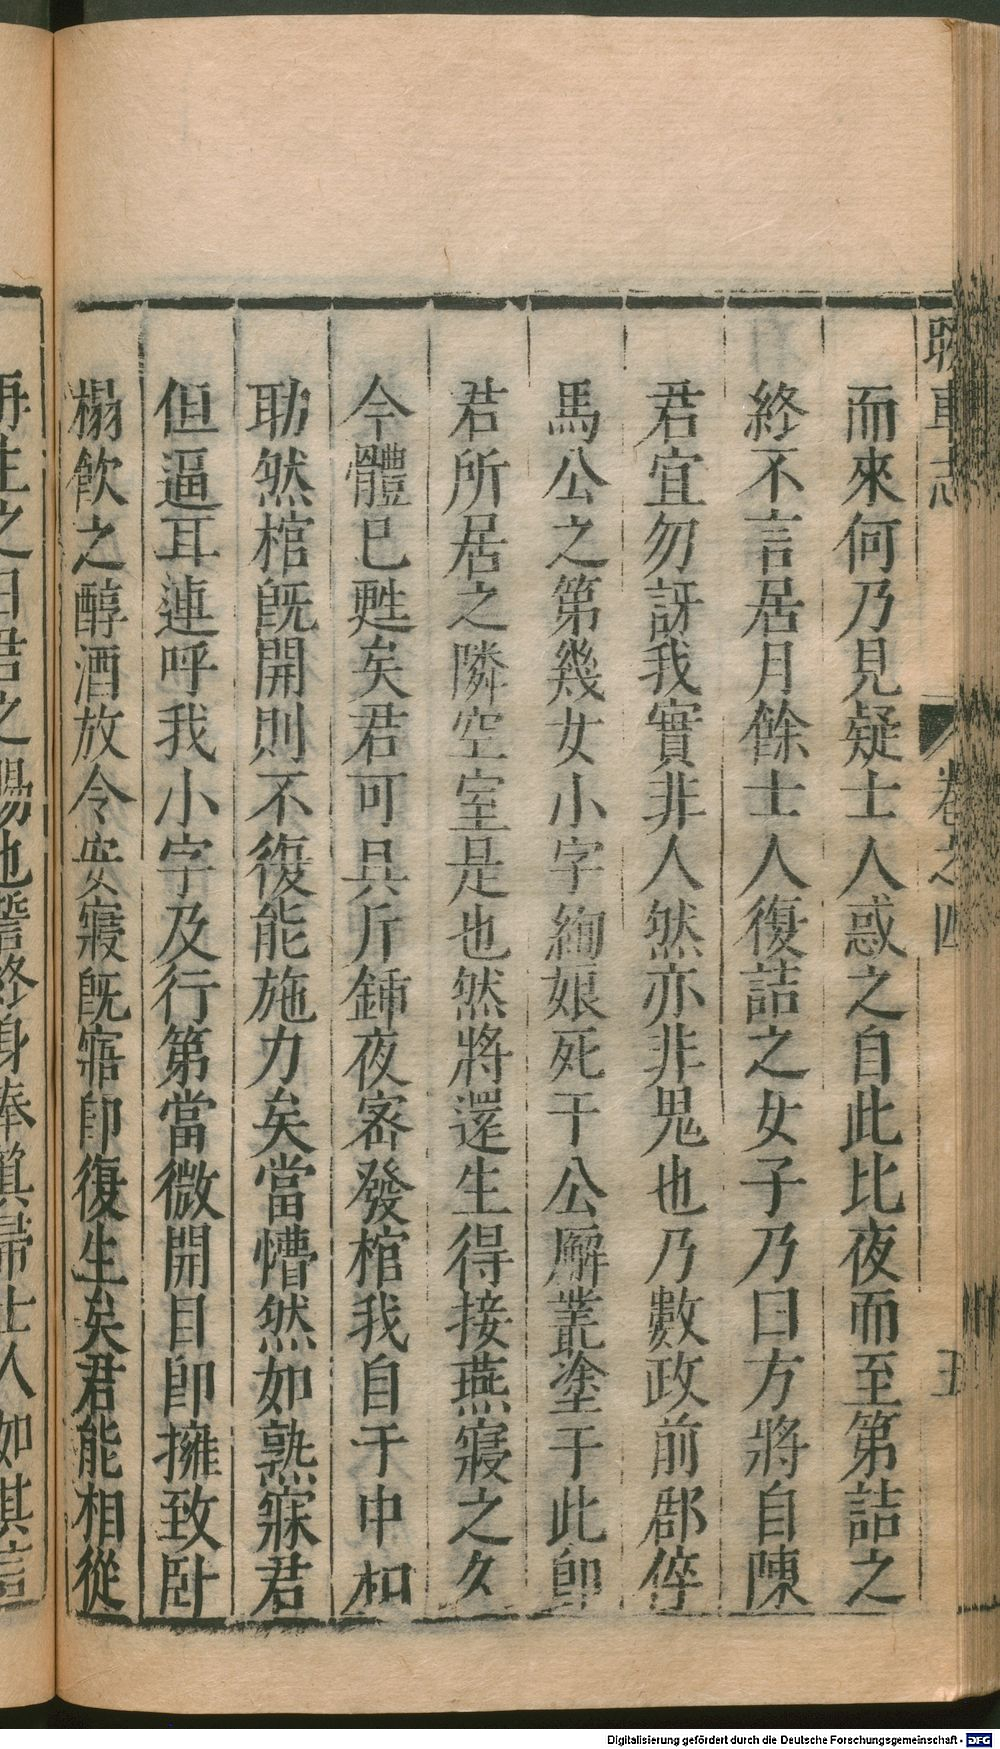 睽車志
卷之四
五
而來何乃見疑士人惑之自此比夜而至第詰之
終不言居月餘士人復詰之女子乃曰方將自陳
君宜勿訝我實非人然亦非鬼也乃數政前郡倅
馬公之第幾女小字絢娘死于公廨叢塗于此卽
君所居之隣空室是也然將還生得接燕寢之久
今體已甦矣君可具斤鍤夜密發棺我自于中相
助然棺旣開則不復能施力矣當懵然如熟寐君
但逼耳連呼我小字及行第當微開目卽擁致臥
榻飲之醇酒放令安寢旣寤卽復生矣君能相從
再生之日君之賜也誓終身奉箕帚士人如其言
Digitalisierung gefördert durch die Deutsche Forschungsgemeinschaft - DFG